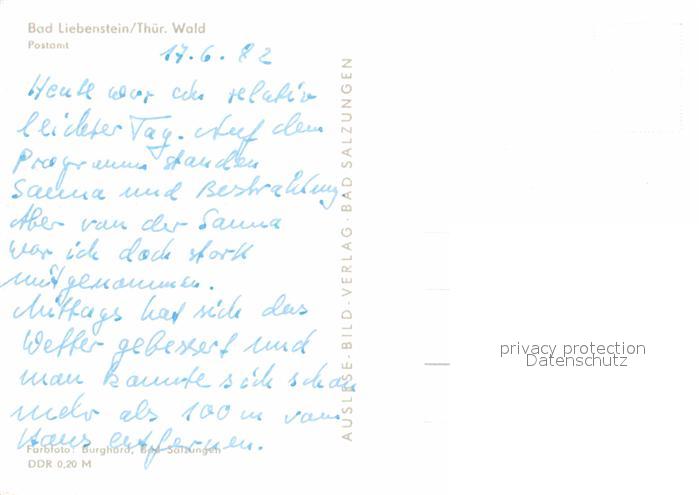 Bad Liebenstein/Thür. Wald
Postamt
17.6.82
Heute war ein relativ
leichter Tag. Auf dem
Programm standen
Sauna und Bestrahlung.
Aber von der Sauna
war ich doch stark
mitgenommen.
Mittags hat sich das
Wetter gebessert und
man konnte sich schon
mehr als 100 m vom
Haus entfernen.
Farbfoto: Burghard, Bad Salzungen
DDR 0,20 M
AUSLESE-BILD-VERLAG·BAD SALZUNGEN
privacy protection
Datenschutz